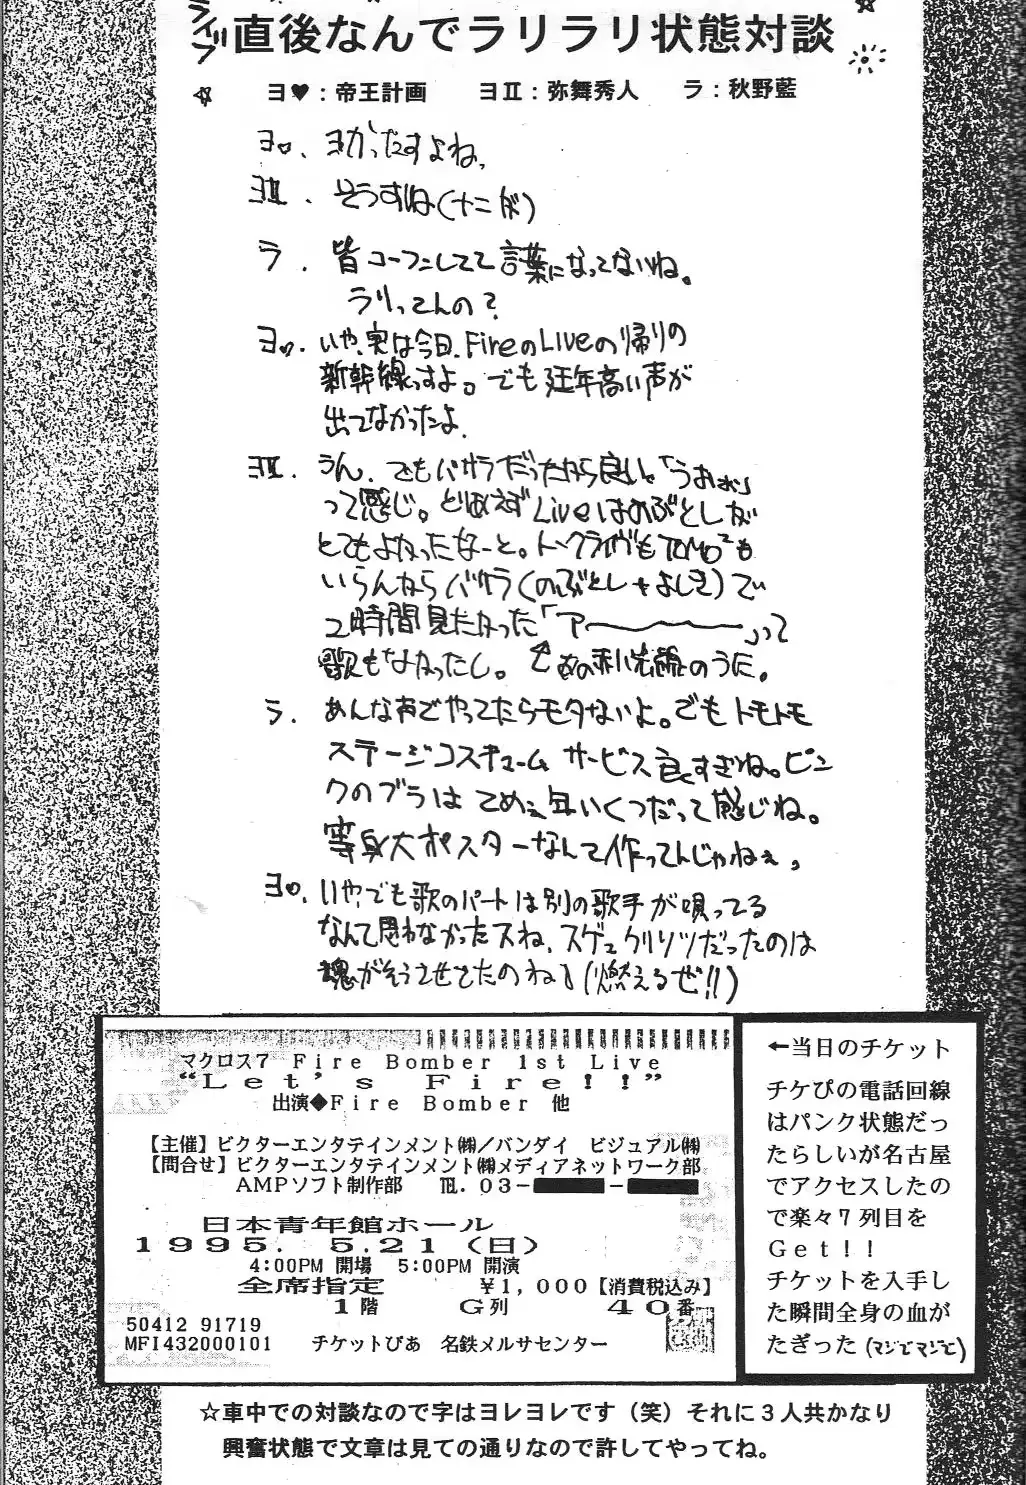 ライブ直後なんでラリラリ状態対談
ヨ♥：帝王計画　ヨⅡ：弥舞秀人　ラ：秋野藍
ヨ。、ヨかったすよね、
ヨⅡ．そうすね(ナニが)
ラ．皆コーフンしてて言葉になってないね。
ラリってんの？
いや、実は今日、FireのLiveの帰りの
新幹線っすよ。でも延年高い声が
出てなかったよ．
ヨⅡ．うん．でもバサラだったから良い。「うおぉぉ」
って感じ。とりあえずLiveはのぶとしが
とてもよかったなーと。トークライヴもTOMO²も
いらんからバサラ(のぶとし+よしき)で
2時間見たかった「アー〜〜〜」って
歌もなかったし。
ラ．あんな声でやってたらモタないよ。でもトモトモ
ステージコスチューム サービス良すぎね。ピン
クのブラはてめぇ年いくつだって感じね。
等身大ポスターなんて作ってんじゃねぇ。
いや、でも歌のパートは別の歌手が唄ってる
なんて思わなかったスね、スゲェクリソツだったのは
魂がそうさせてたのね」(燃えるぜ!!)
マクロス7 Fire Bomber 1st Live
"Let's Fire!!"
出演◆Fire Bomber 他
【主催】ビクターエンタテインメント㈱／バンダイ ビジュアル㈱
【問合せ】ビクターエンタテインメント㈱メディアネットワーク部
AMPソフト制作部 ℡．03－ －
日本青年館ホール
1995. 5.21(日)
4:00PM 開場 5:00PM 開演
全席指定 ¥1,000【消費税込み】
1階 G列 40番
50412 91719
MFI432000101 チケットぴあ 名鉄メルサセンター
←当日のチケット
チケぴの電話回線
はパンク状態だっ
たらしいが名古屋
でアクセスしたの
で楽々7列目を
Get!!
チケットを入手し
た瞬間全身の血が
たぎった(マジでマジで)
☆車中での対談なので字はヨレヨレです（笑）それに3人共かなり
興奮状態で文章は見ての通りなので許してやってね。